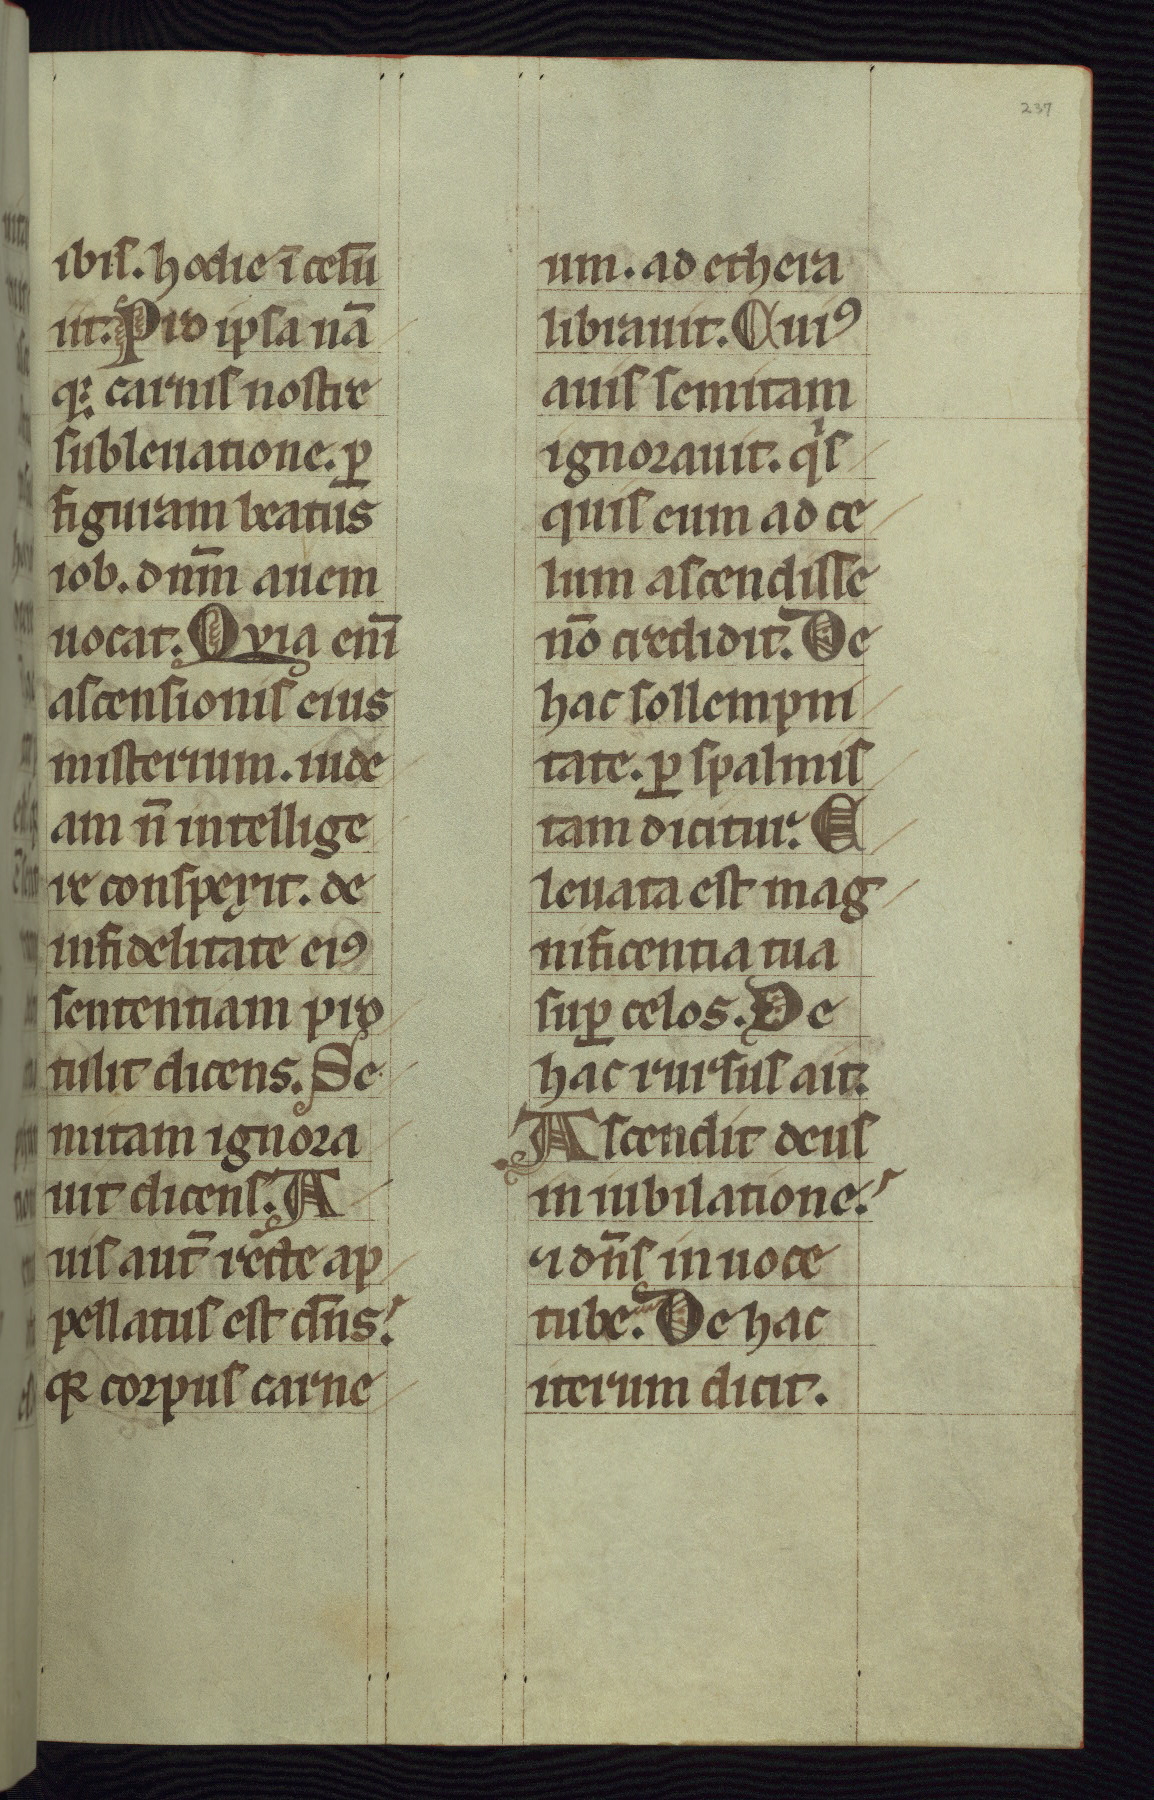 237
ibis. hodie ī celū
iit. Pro ipsa nā
qꝫ carnis nostre
subleuatione. ꝑ
figuram beatus
iob. dnm̄ auem
uocat. Qvia enī
ascensionis eius
misterium. iude
am n̄ intellige
re conspexit. de
infidelitate eiꝰ
sententiam pro
tulit dicens. Se
mitam ignora
uit dicens. A
uis aut̄ rēcte ap
pellatus est dn̄s.
qꝛ corpus carne
um. ad ethera
librauit. Cuiꝰ
auis semitam
ignorauit. qͥs
quis eum ad ce
lum ascendisse
nō credidit. De
hac sollempni
tate. ꝑ spalmis
tam dicitur. E
leuata est mag
nificentia tua
suꝑ celos. De
hac rursus ait.
Ascendit deus
in iubilatione.
⁊ dn̄s in uoce
tube. De hac
iterum dicit.